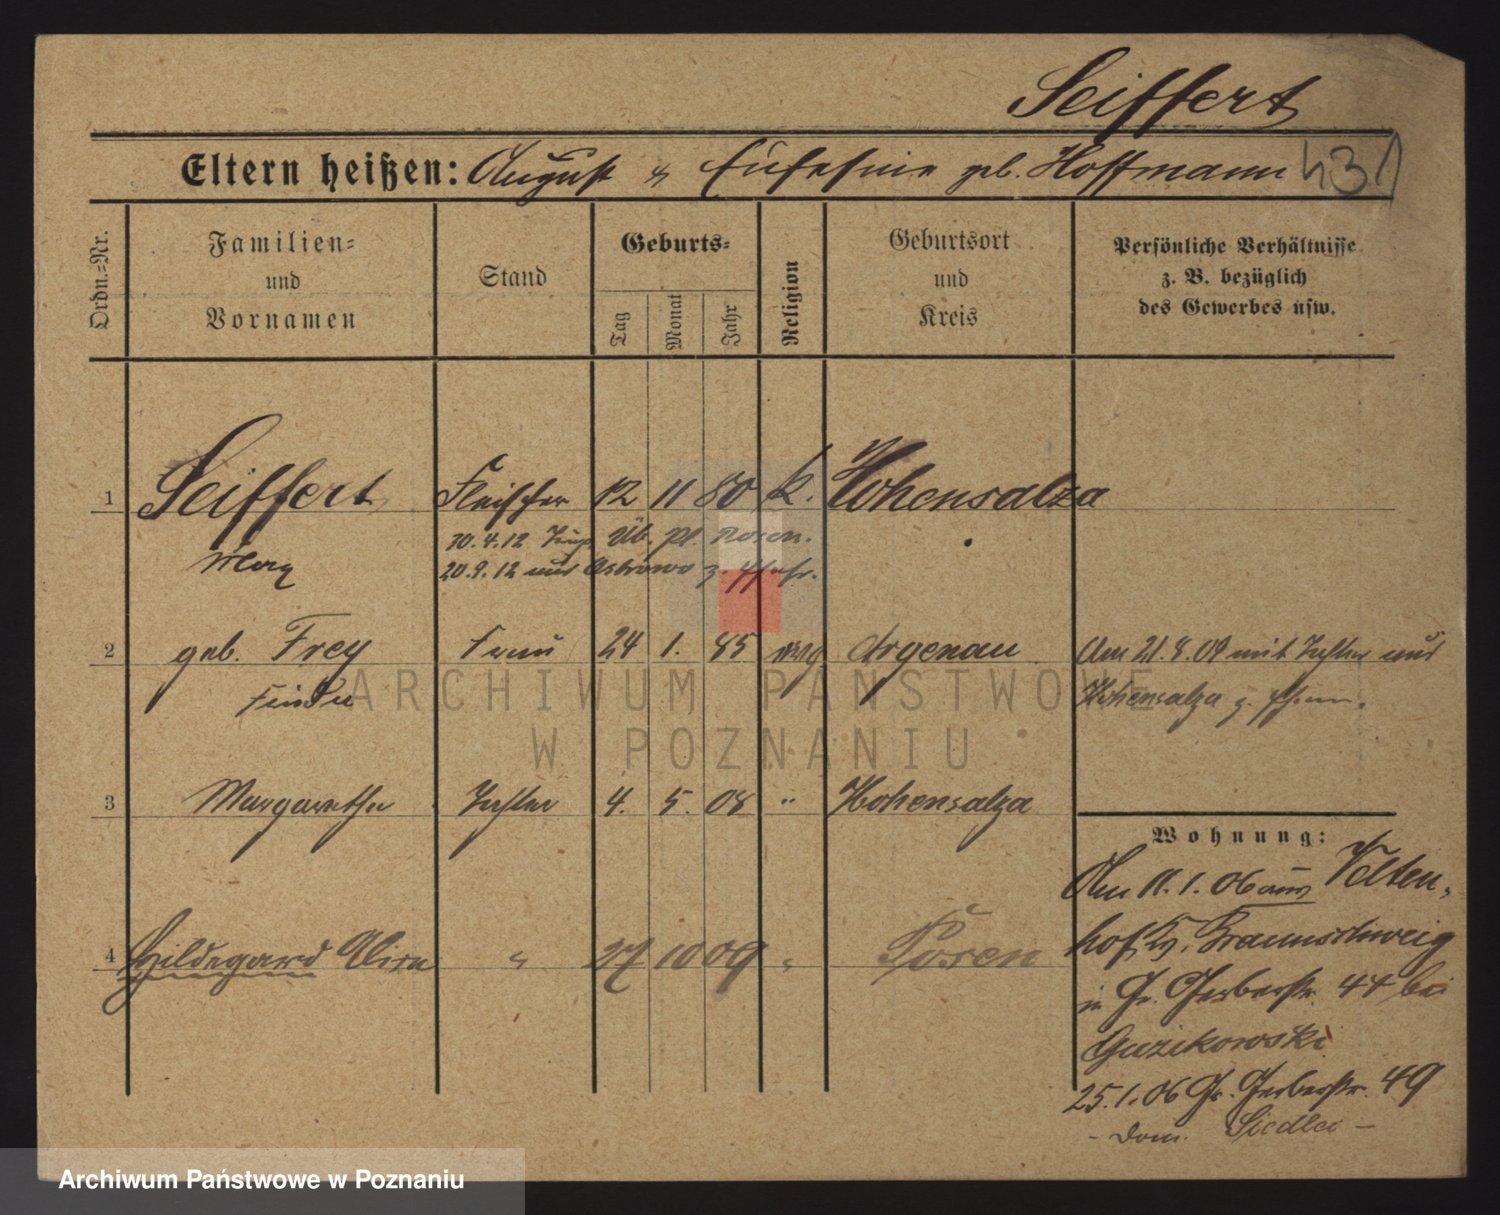 Seiffert
Eltern heißen: August u. Eufefine geb. Hoffmann 431
Ordn.-Nr. Familien- und Vornamen Stand Geburts- Tag Monat Jahr Religion Geburtsort und Kreis Persönliche Verhältnisse z. B. bezüglich des Gewerbes usw.
1 Seiffert Fleischer 12 11 80 k. Hohensalza
30.4.12 Üb. pl. Posen.
Max 20.9.12 aus Ostrowo z.
2 geb. Frey Frau 24 1. 85 Argenau Am 21.8.09 mit Tochter aus
Hohensalza z.
ARCHIWUM PAŃSTWOWE
W POZNANIU
3 Margarethe Tochter 4. 5. 08 " Hohensalza
Wohnung:
Am 11.1.06 aus Velten-
4 Hildegard " 27 10 09 " Posen
hof, Braunschweig
in Gr. Gerberstr. 44 bei
Guzikowski
25.1.06 Gr. Gerberstr. 49
- Dom. Siedlec -
Archiwum Państwowe w Poznaniu